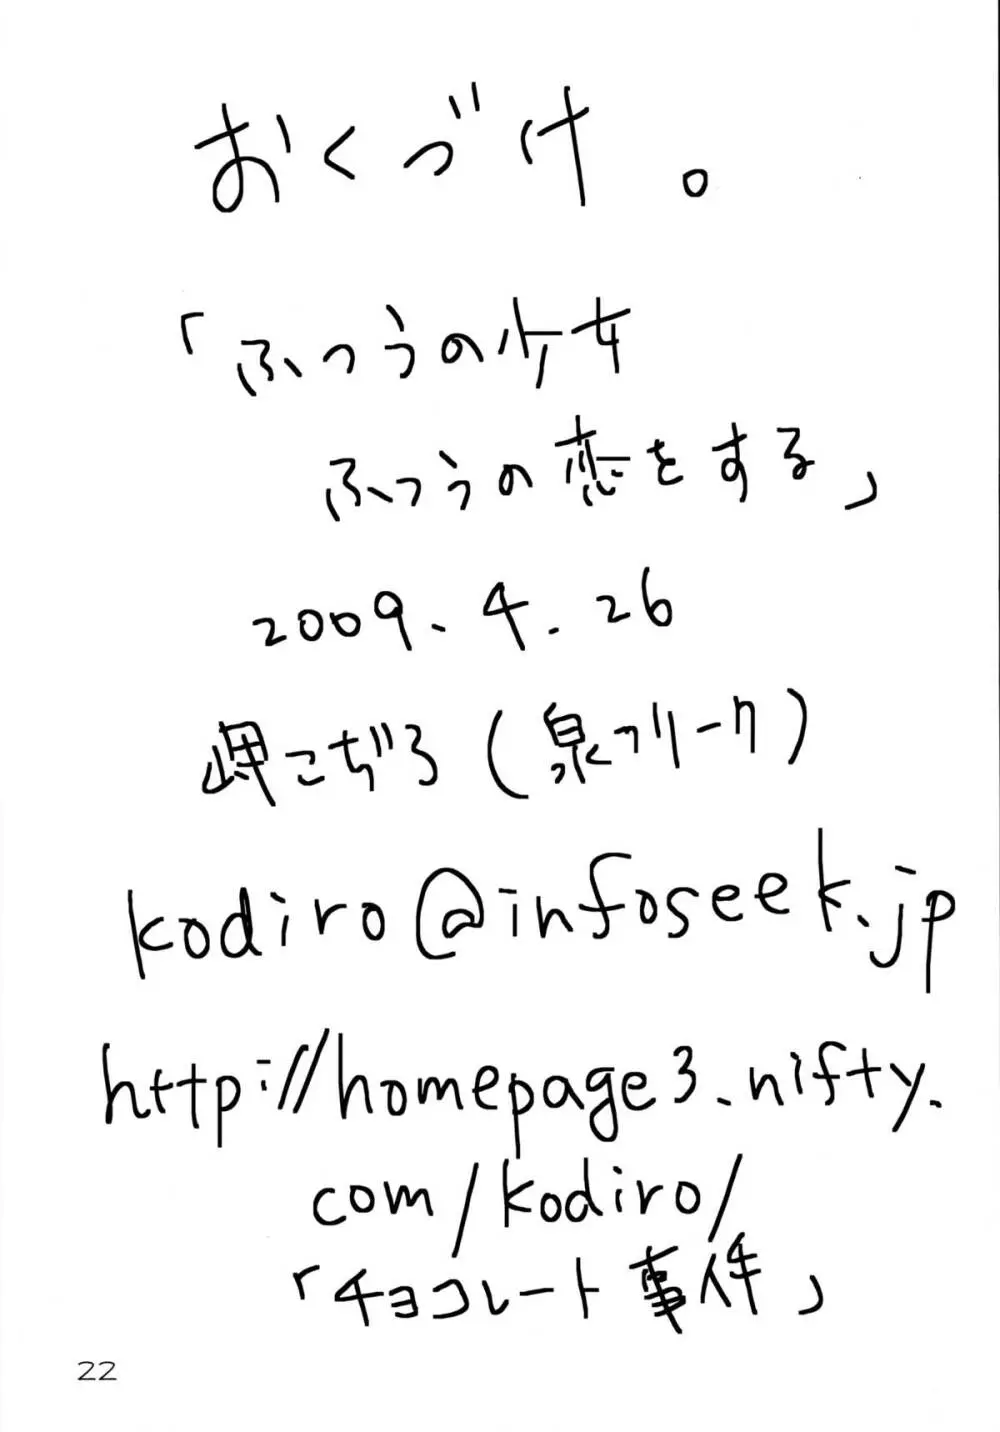 おくづけ。
「ふつうの少女
ふつうの恋をする」
2009.4.26
岬こぢろ(泉フリーク)
kodiro@infoseek.jp
http://homepage3.nifty.
com/kodiro/
「チョコレート事件」
22